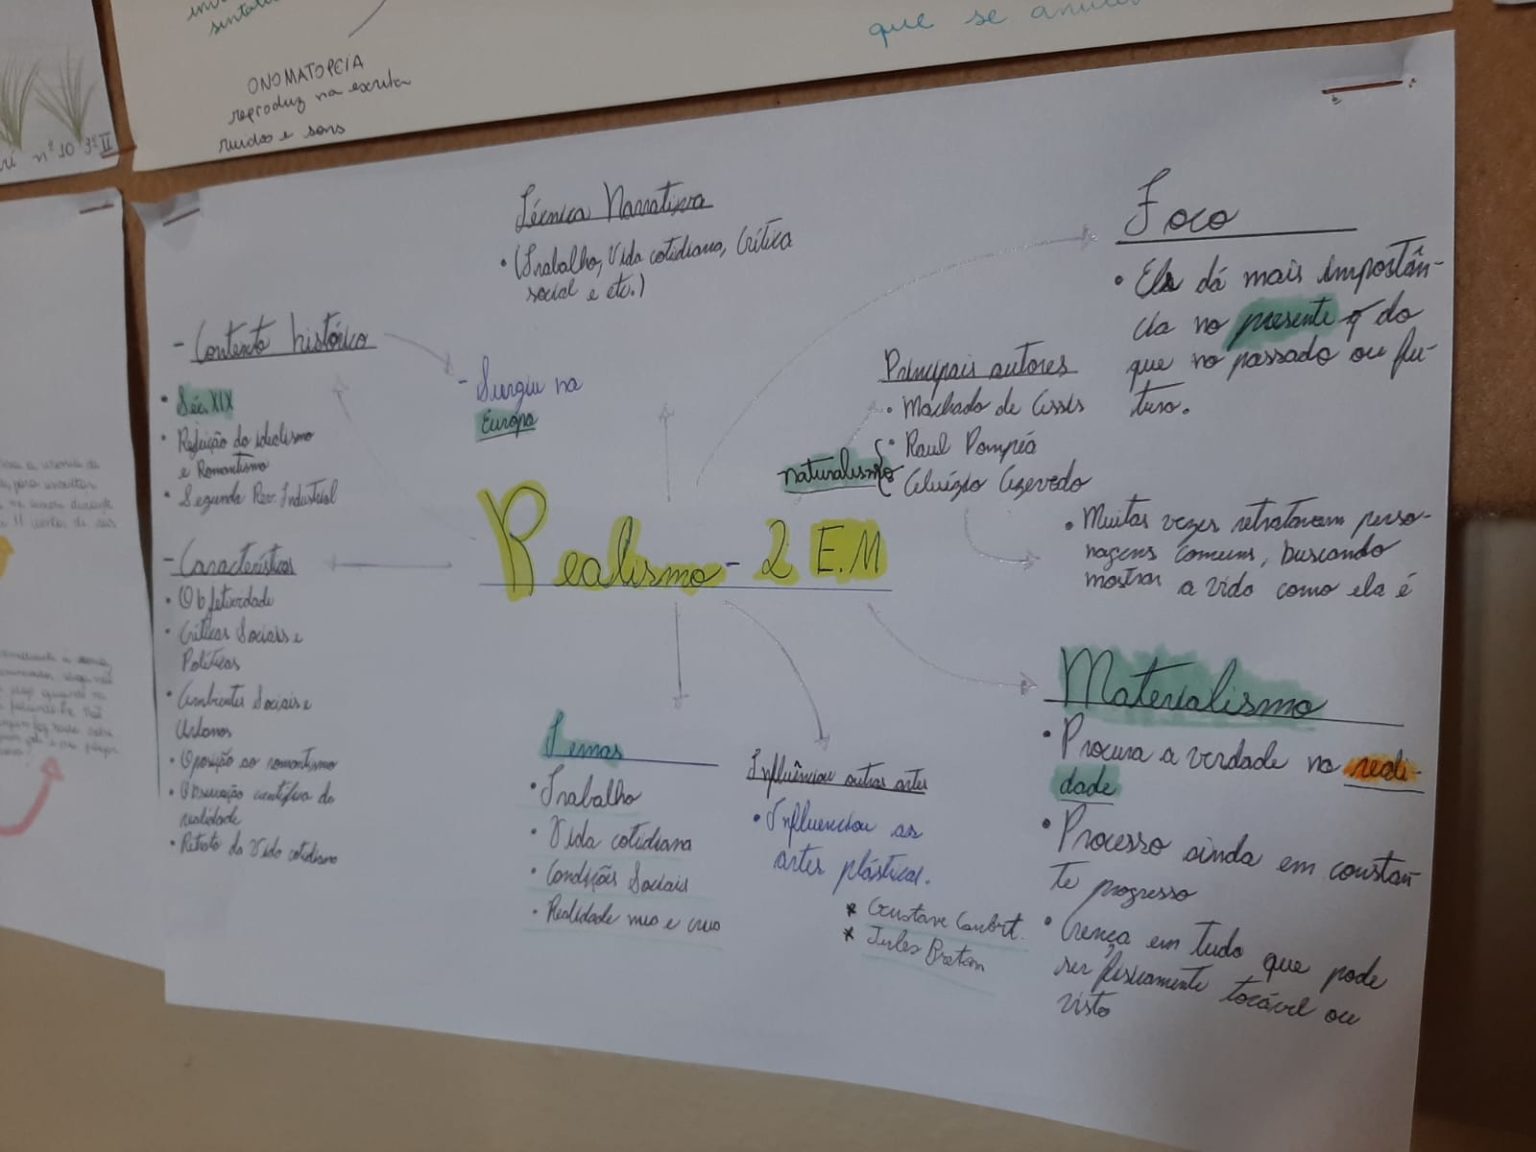 que se
ONOMATOPEIA
reproduz na escrita
ruídos e sons
nº10 3ºII
Técnica Narrativa
• (Trabalho, Vida cotidiana, Crítica
social e etc.)
Foco
• Ela dá mais importân-
cia no presente do
que no passado ou fu-
turo.
- Contexto histórico
• Séc. XIX
• Rejeição do idealismo
e Romantismo
• Segunda Rev. Industrial
- Surgiu na
Europa
Principais autores
• Machado de Assis
naturalismo { • Raul Pompéia
Aluízio Azevedo
• Muitas vezes retratavam perso-
nagens comuns, buscando
mostrar a vida como ela é
Realismo - 2 E.M
- Características
• Objetividade
• Críticas Sociais e
Políticas
• Ambientes Sociais e
Urbanos
• Oposição ao romantismo
• Observação científica da
realidade
• Retrato da Vida cotidiana
Temas
• Trabalho
• Vida cotidiana
• Condições Sociais
• Realidade nua e crua
Influênciou outras artes
• Influenciou as
artes plásticas.
* Gustave Courbet.
* Jules Breton
Materialismo
• Procura a verdade na reali-
dade
• Processo ainda em constan-
te progresso
• Crença em tudo que pode
ser fisicamente tocável ou
visto